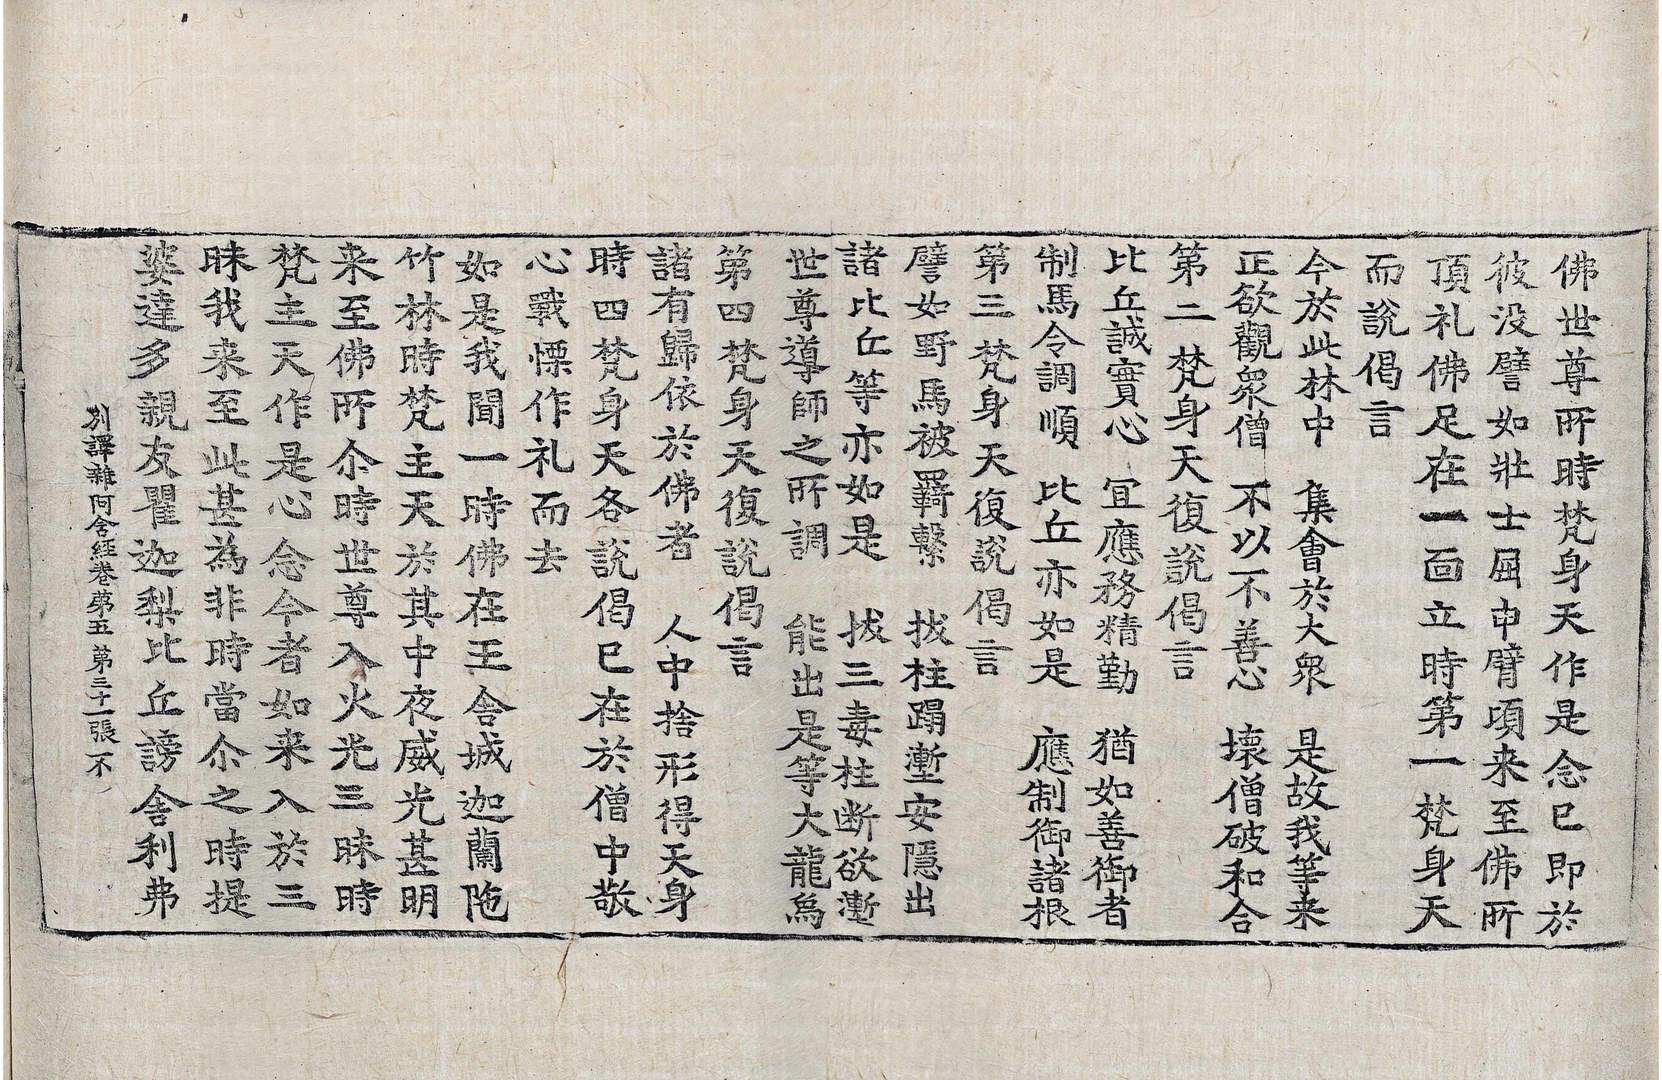 佛世尊所時梵身天作是念已即於
彼没譬如壯士屈申臂頃来至佛所
頂礼佛足在一面立時第一梵身天
而說偈言
今於此林中　集會於大眾　是故我等来
正欲觀眾僧　不以不善心　壞僧破和合
第二梵身天復說偈言
比丘誠實心　冝應務精勤　猶如善御者
制馬令調順　比丘亦如是　應制御諸根
第三梵身天復說偈言
譬如野馬被羈繫　拔柱蹋壍安隱出
諸比丘等亦如是　拔三毒柱断欲壍
世尊導師之所調　能出是等大龍為
第四梵身天復說偈言
諸有歸依於佛者　人中捨形得天身
時四梵身天各說偈已在於僧中敬
心戰慄作礼而去
如是我聞一時佛在王舍城迦蘭陁
竹林時梵主天於其中夜威光甚明
来至佛所尒時世尊入火光三昧時
梵主天作是心念今者如来入於三
昧我来至此甚為非時當尒之時提
婆達多親友瞿迦梨比丘謗舍利弗
別譯雜阿含經卷苐五　第三十一張　不